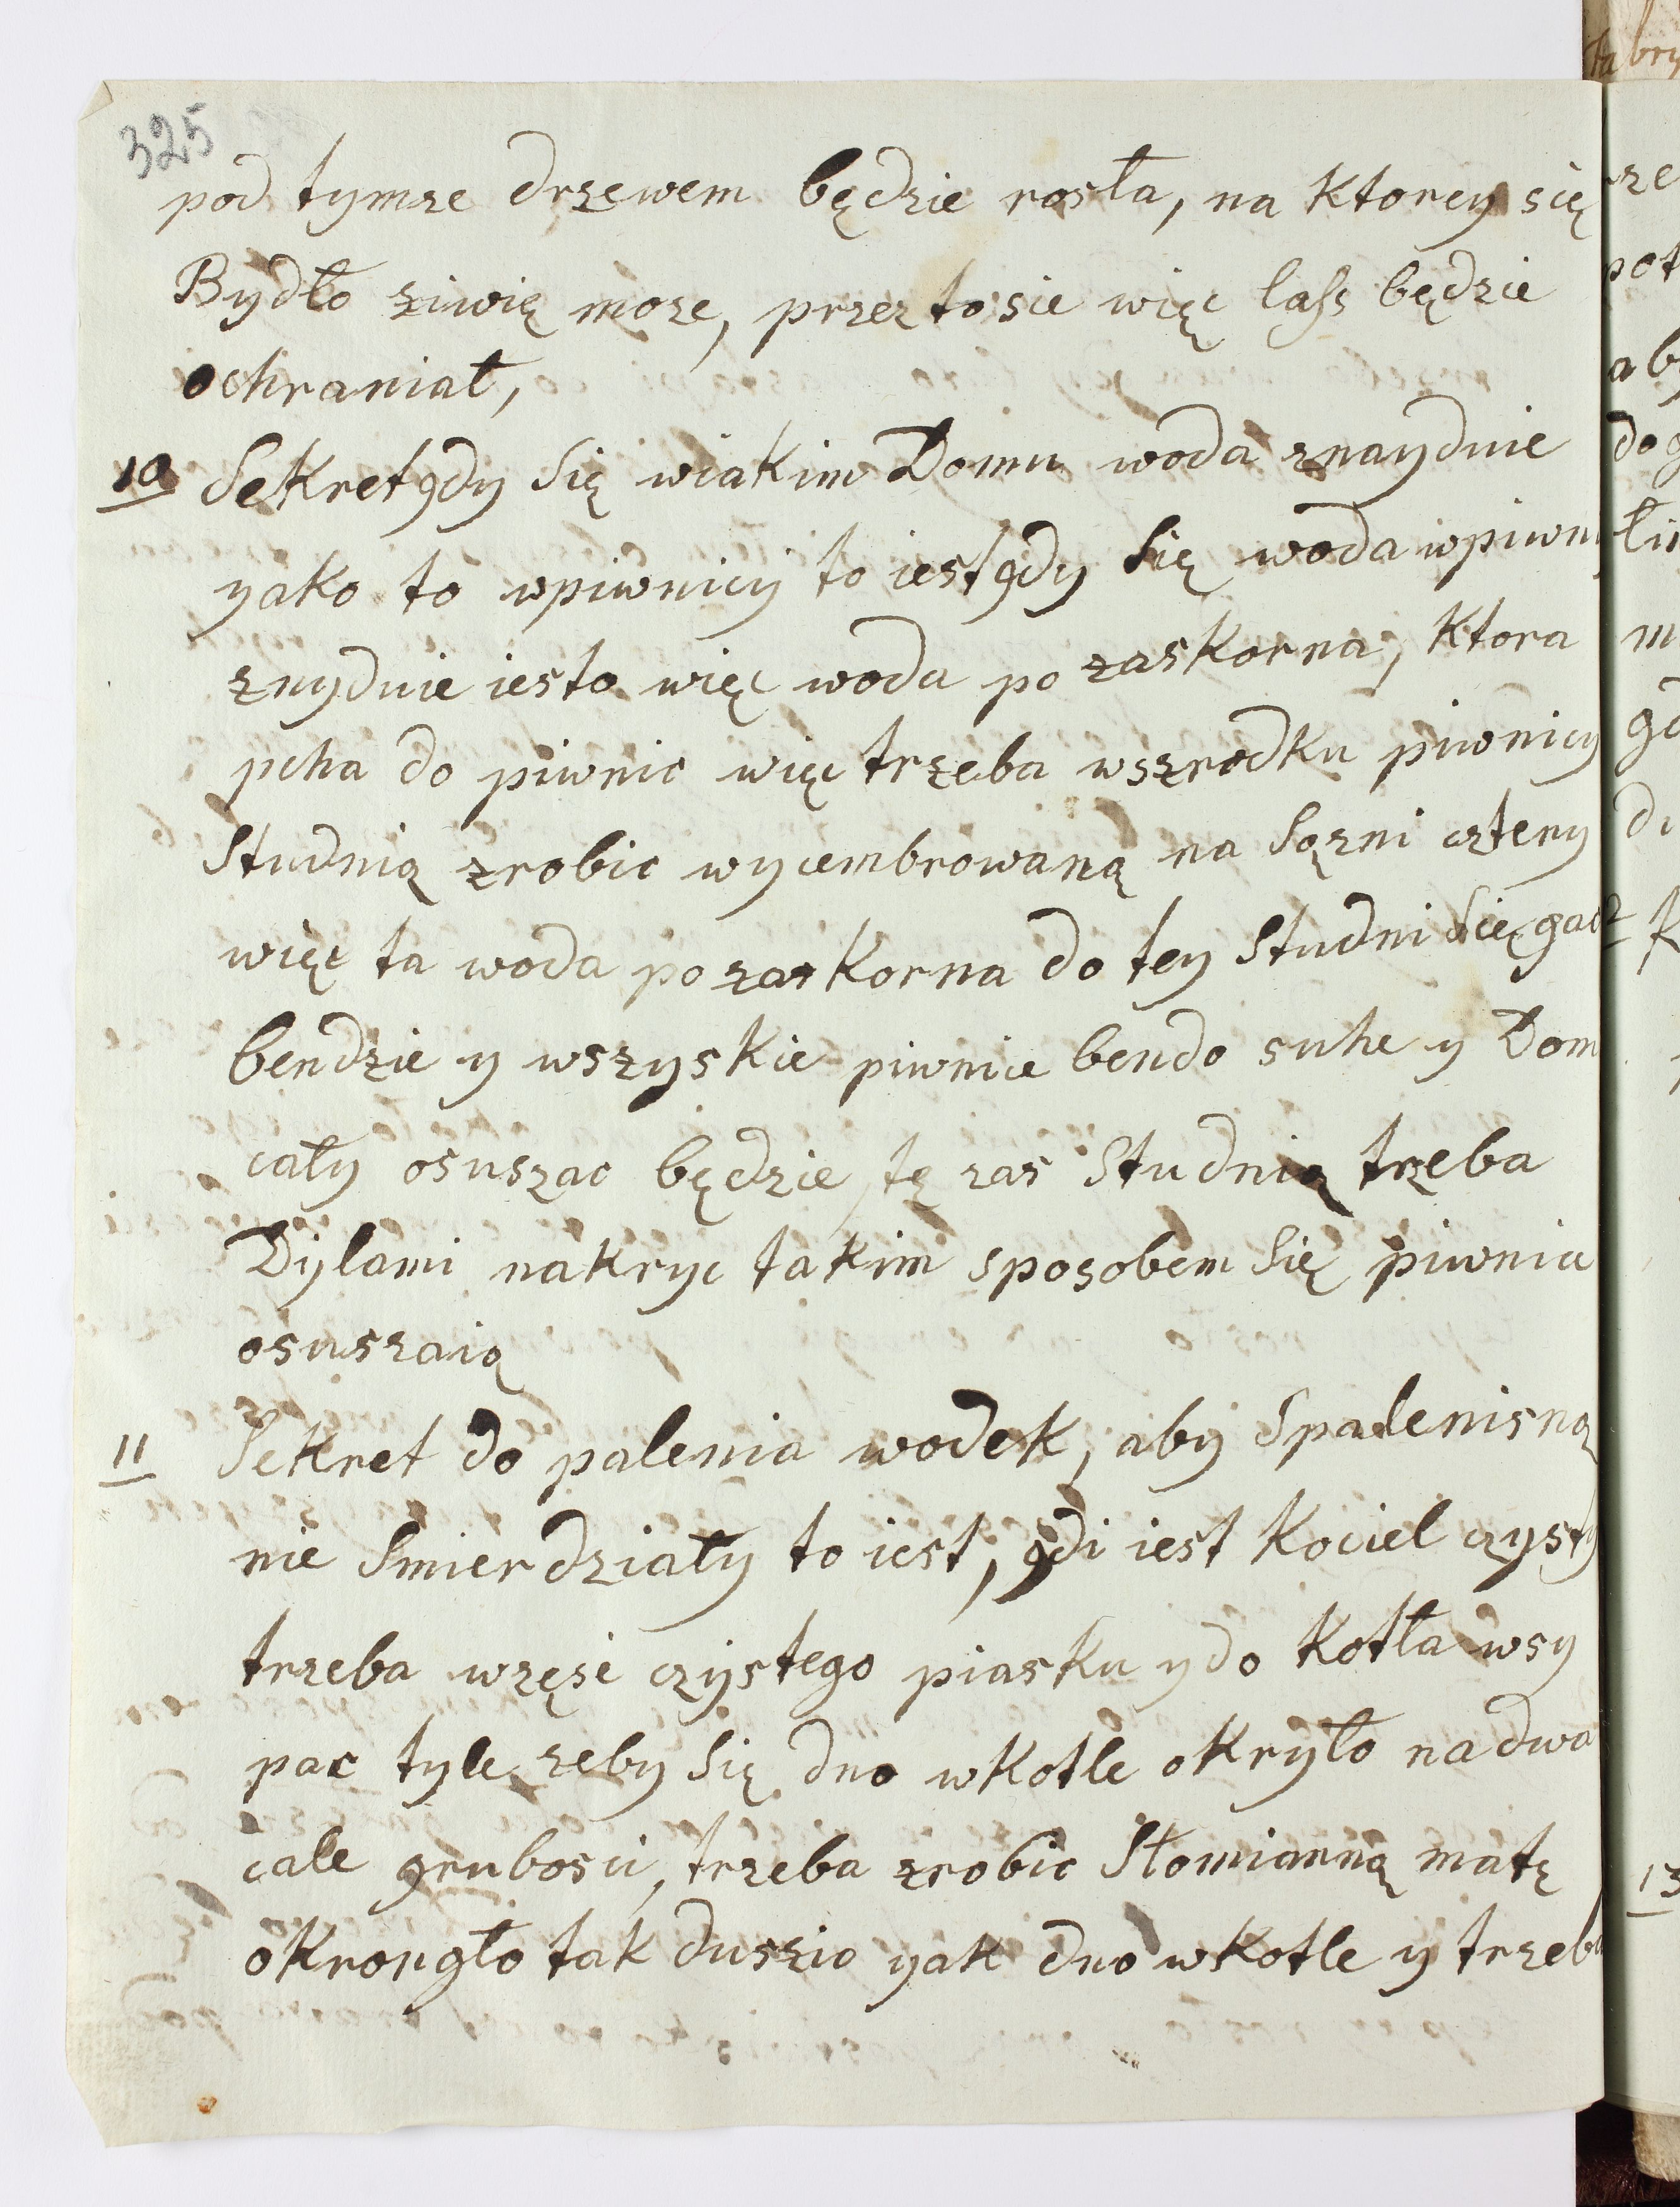 325
pod tymze drzewem będzie rosła, na ktorey się
Bydło ziwię moze, przez to sie więc lass będzie
ochraniał,
10 Sekret gdy Się wiakim Domu woda znaydnie
yako to wpiwnicy to iest gdy Się woda wpiwni
znydnie iesto więc woda po zaskorna, ktora
pcha do piwnic więc trzeba wszrodku piwnicy
Studnią zrobic wycembrowaną na Sązni cztery
więc ta woda po zaskorna do tey Studni Sięgac
bendzie y wszyskie piwnice bendo suhe y Dom
cały osuszac będzie, tę zas Studnią trzeba
Dylami nakryc takim sposobem Się piwnice
osuszaią
11 Sekret do palenia wodek, aby Spalenisną
nie Smierdziały to iest, gdi iest Kociel czysty
trzeba wzęsć czystego piasku y do Kotła wsy
pac tyle zeby Się dno wKotle okryło na dwa
cale grubosci, trzeba zrobic Słomianną matę
okrongło tak duszio yak dno wKotle y trzeba